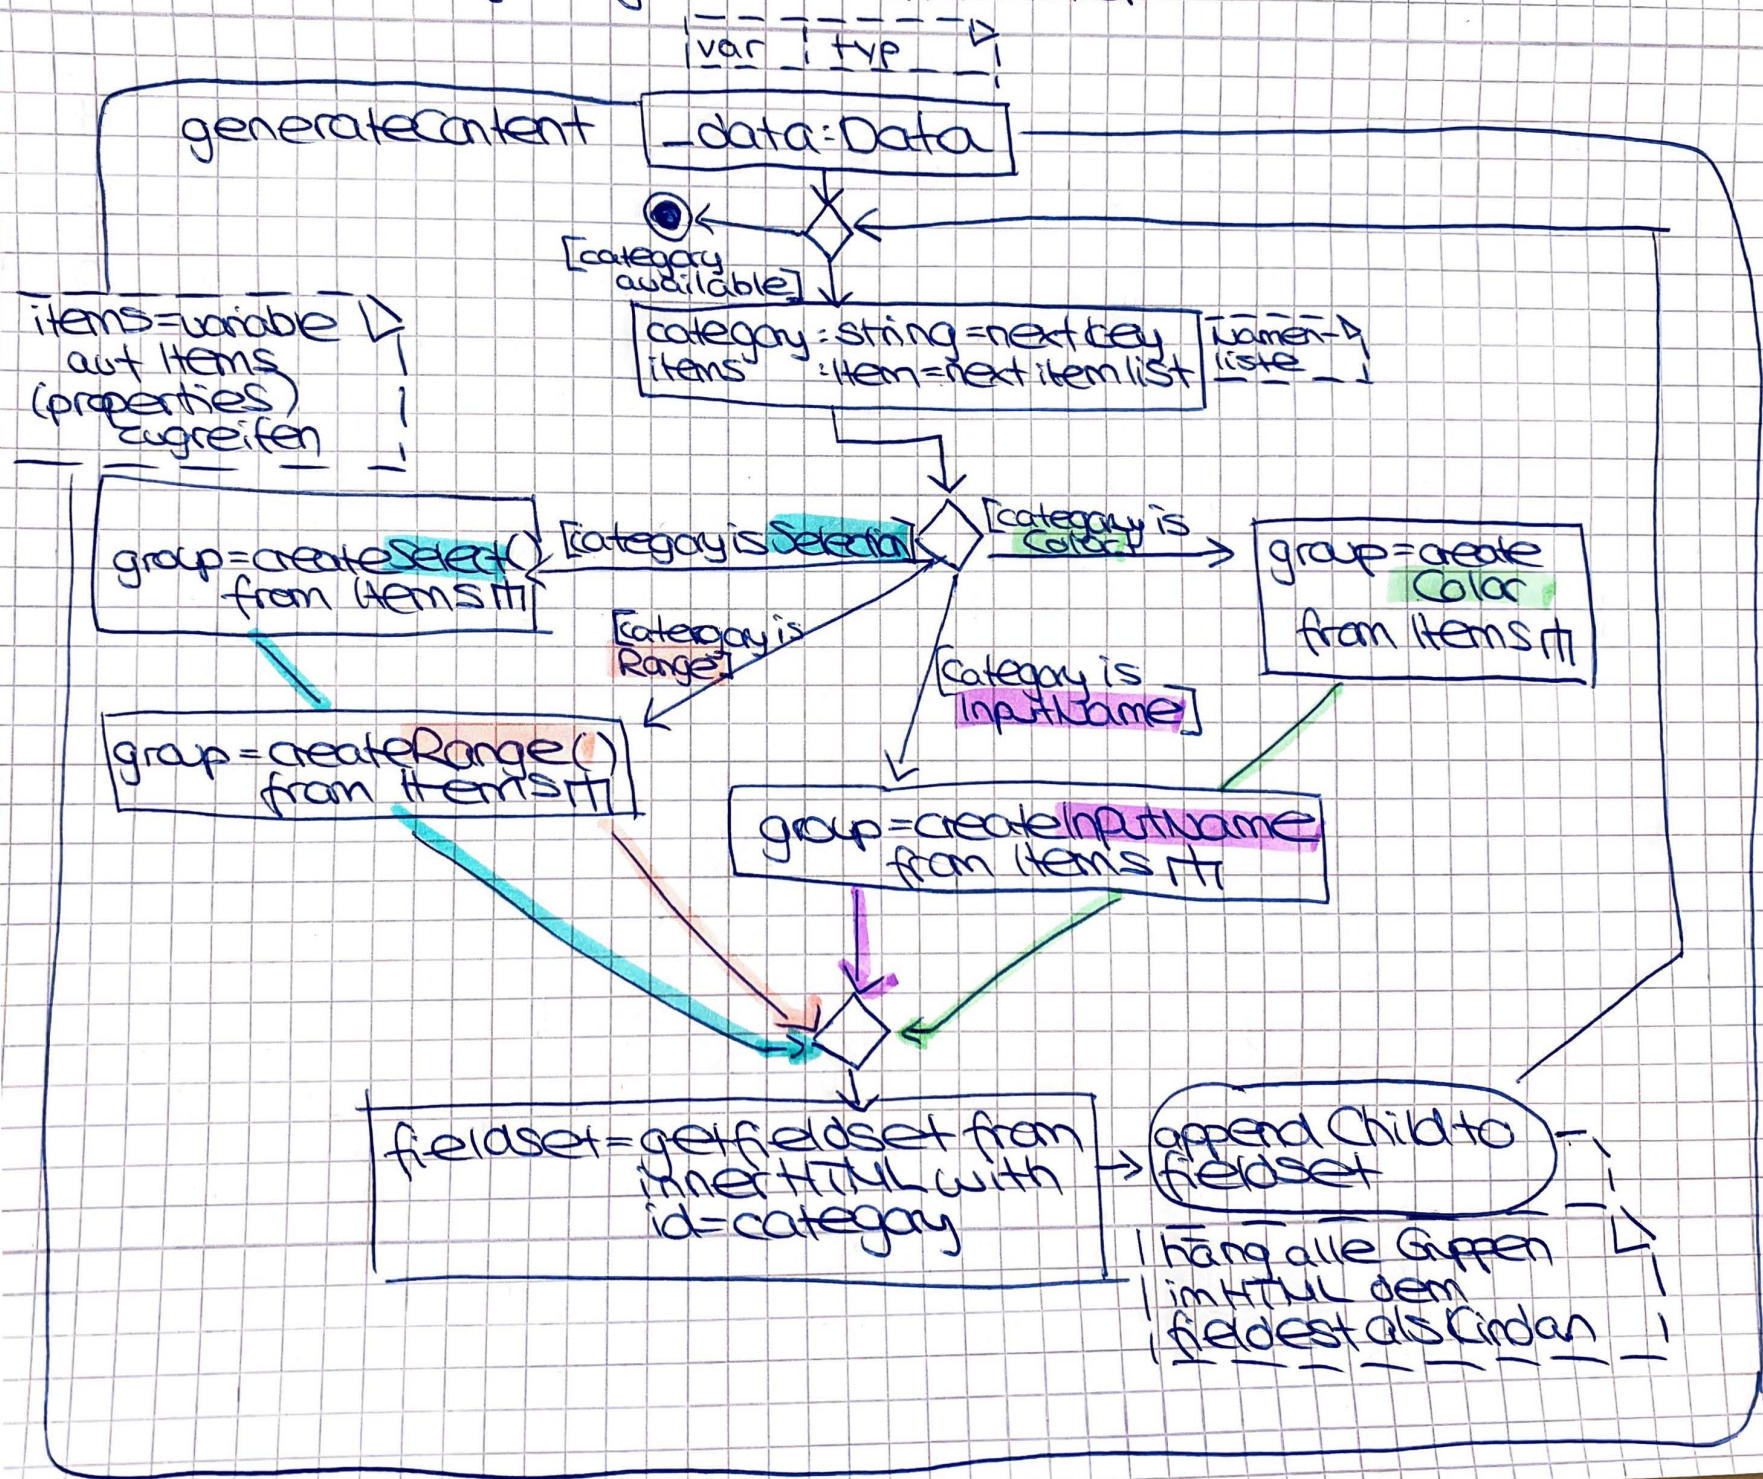 var typ
generateContent
_data:Data
[category
available]
items=variable
auf Items
(properties)
zugreifen
category:string=next key
items :Item=next item list
Namen-
liste
[category is Selection]
[category is
Color]
group=createSelect()
from Items
group=create
Color
from Items
[catergay is
Range]
[category is
InputName]
group=createRange()
from Items
group=createInputName
from Items
fieldset=getfieldset from
innerHTML with
id=category
append Child to
fieldset
häng alle Guppen
im HTML dem
fieldest als Kind an